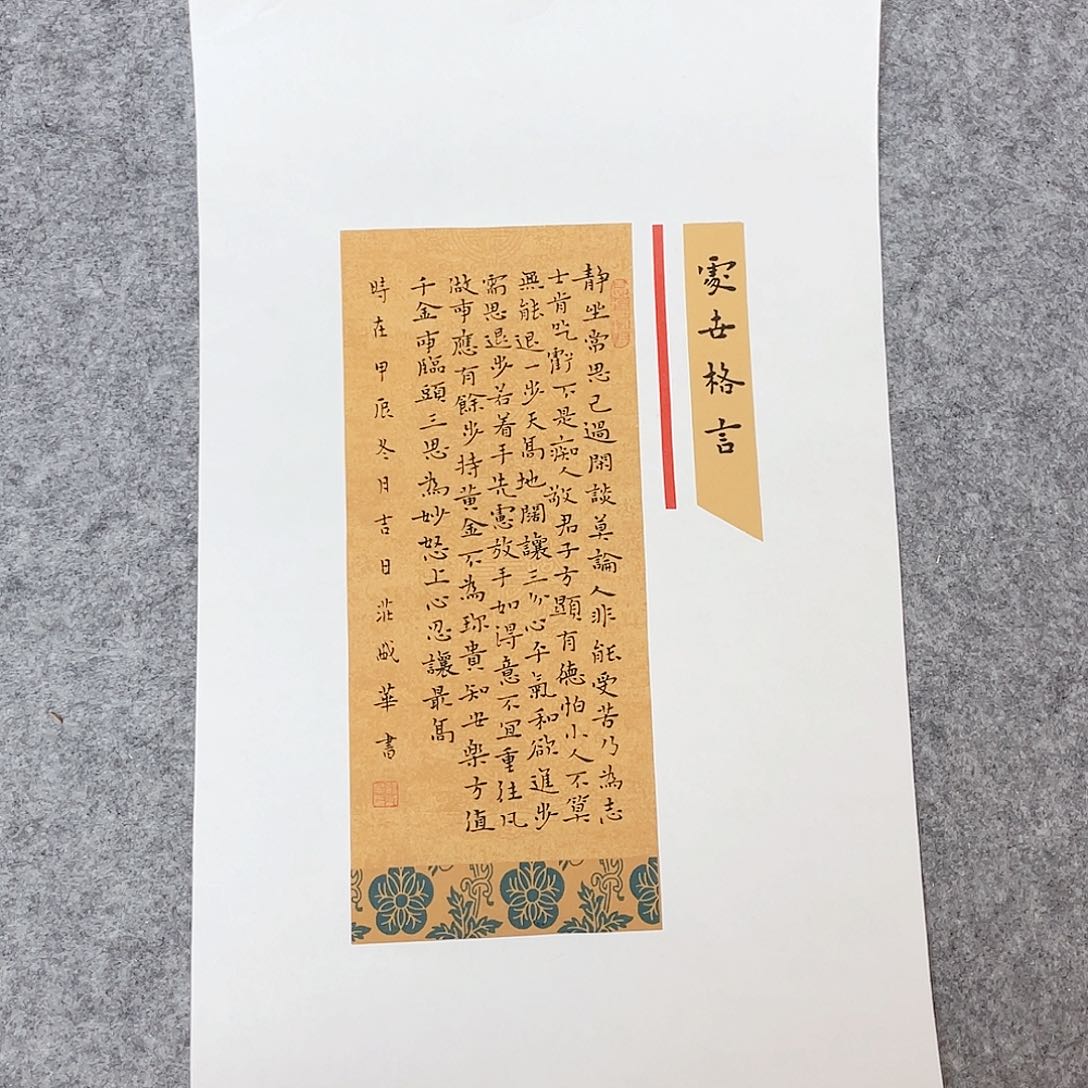 處世格言
靜坐常思己過閑談莫論人非能受苦乃為志
士肯吃虧不是痴人敬君子方顯有德怕小人不算
無能退一步天高地闊讓三分心平氣和欲進步
需思退步若着手先慮放手如得意不宜重往凡
做事應有餘步持黃金不為珎貴知安樂方值
千金事臨頭三思為妙怒上心忍讓最高
時在甲辰冬月吉日莊成華書